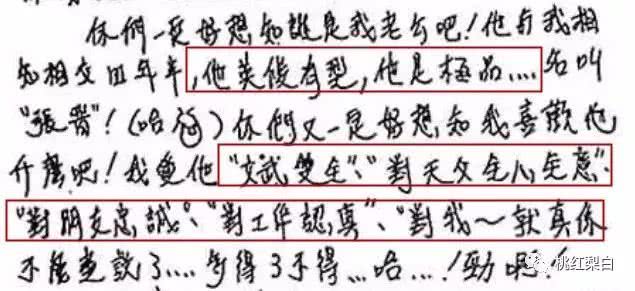 你們一定好想知誰是我老公吧!他與我相
知相交四年半,他英俊有型,他是極品....名叫
"張晉"!(哈哈)你們又一定好想知我喜歡他
什麼吧!我覺他"文武雙全"、"對天父全心全意"、
"對朋友忠誠"、"對工作認真"、"對我～就真係
不能盡說了....多得了不得...哈...!勁啊!
桃红梨白